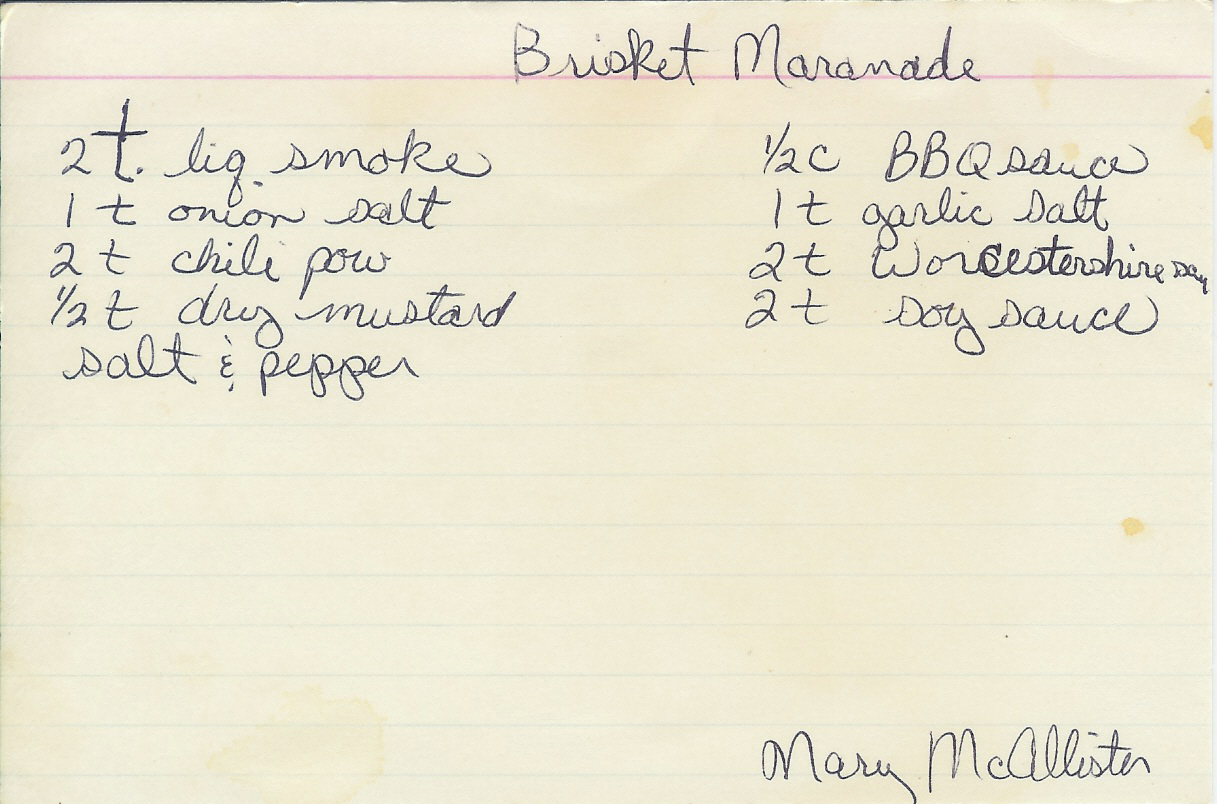 Brisket Maranade
2 t. liq. smoke
1 t onion salt
2 t chili pow
1/2 t dry mustard
salt & pepper
1/2 c BBQ sauce
1 t garlic salt
2 t Worcestershire
2 t soy sauce
Mary McAllister